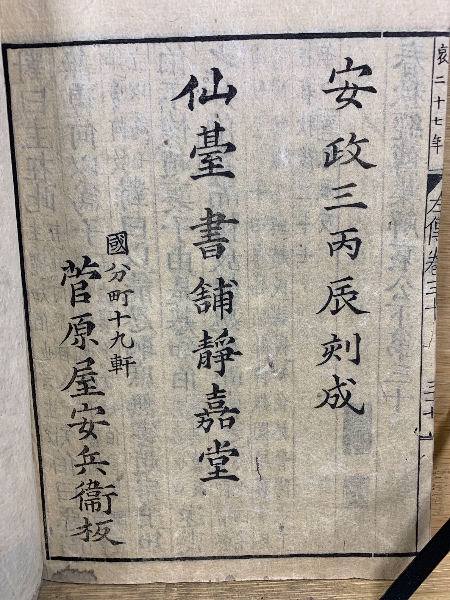 哀二十七年
左傳卷三十
安政三丙辰刻成
仙臺書舖靜嘉堂
國分町十九軒
菅原屋安兵衞板